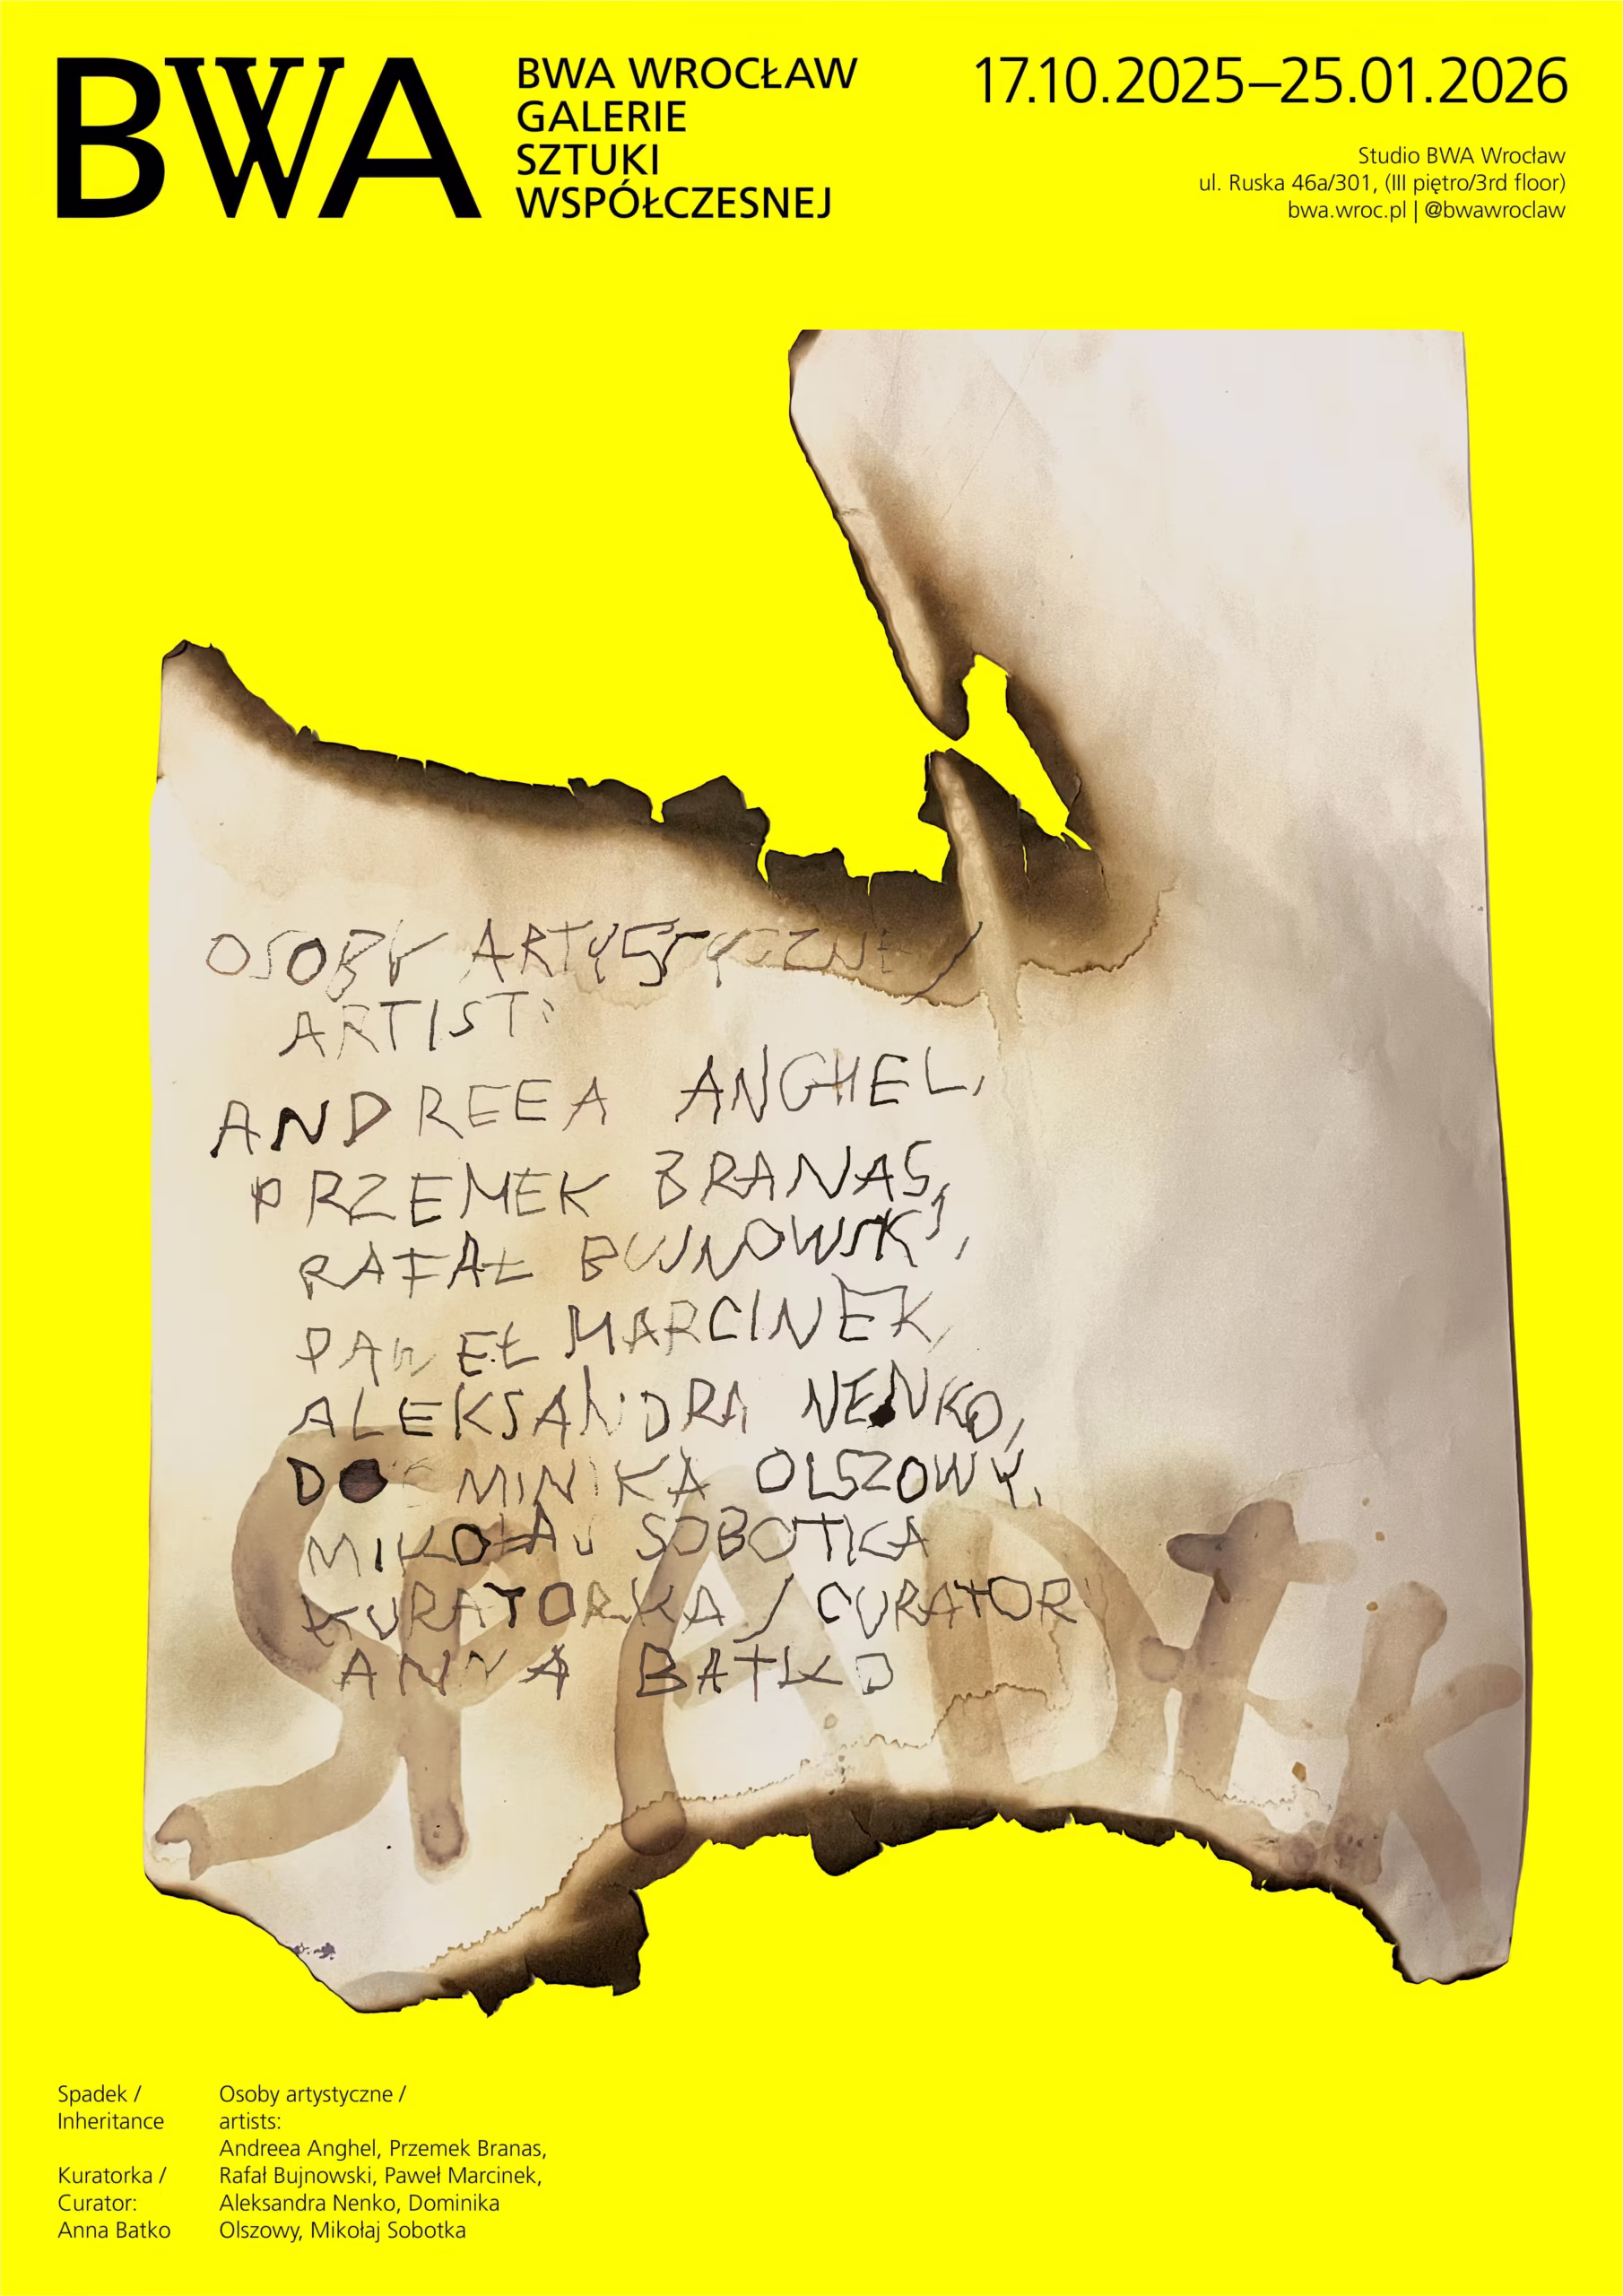 BWA
BWA WROCŁAW
GALERIE
SZTUKI
WSPÓŁCZESNEJ
17.10.2025–25.01.2026
Studio BWA Wrocław
ul. Ruska 46a/301, (III piętro/3rd floor)
bwa.wroc.pl | @bwawroclaw
OSOBY ARTYSTYCZNE /
ARTIST:
ANDREEA ANGHEL,
PRZEMEK BRANAS,
RAFAŁ BUJNOWSKI,
PAWEŁ MARCINEK,
ALEKSANDRA NENKO,
DOMINIKA OLSZOWY,
MIKOŁAJ SOBOTKA
KURATORKA / CURATOR
ANNA BATKO
SPADEK
Spadek /
Inheritance
Kuratorka /
Curator:
Anna Batko
Osoby artystyczne /
artists:
Andreea Anghel, Przemek Branas,
Rafał Bujnowski, Paweł Marcinek,
Aleksandra Nenko, Dominika
Olszowy, Mikołaj Sobotka